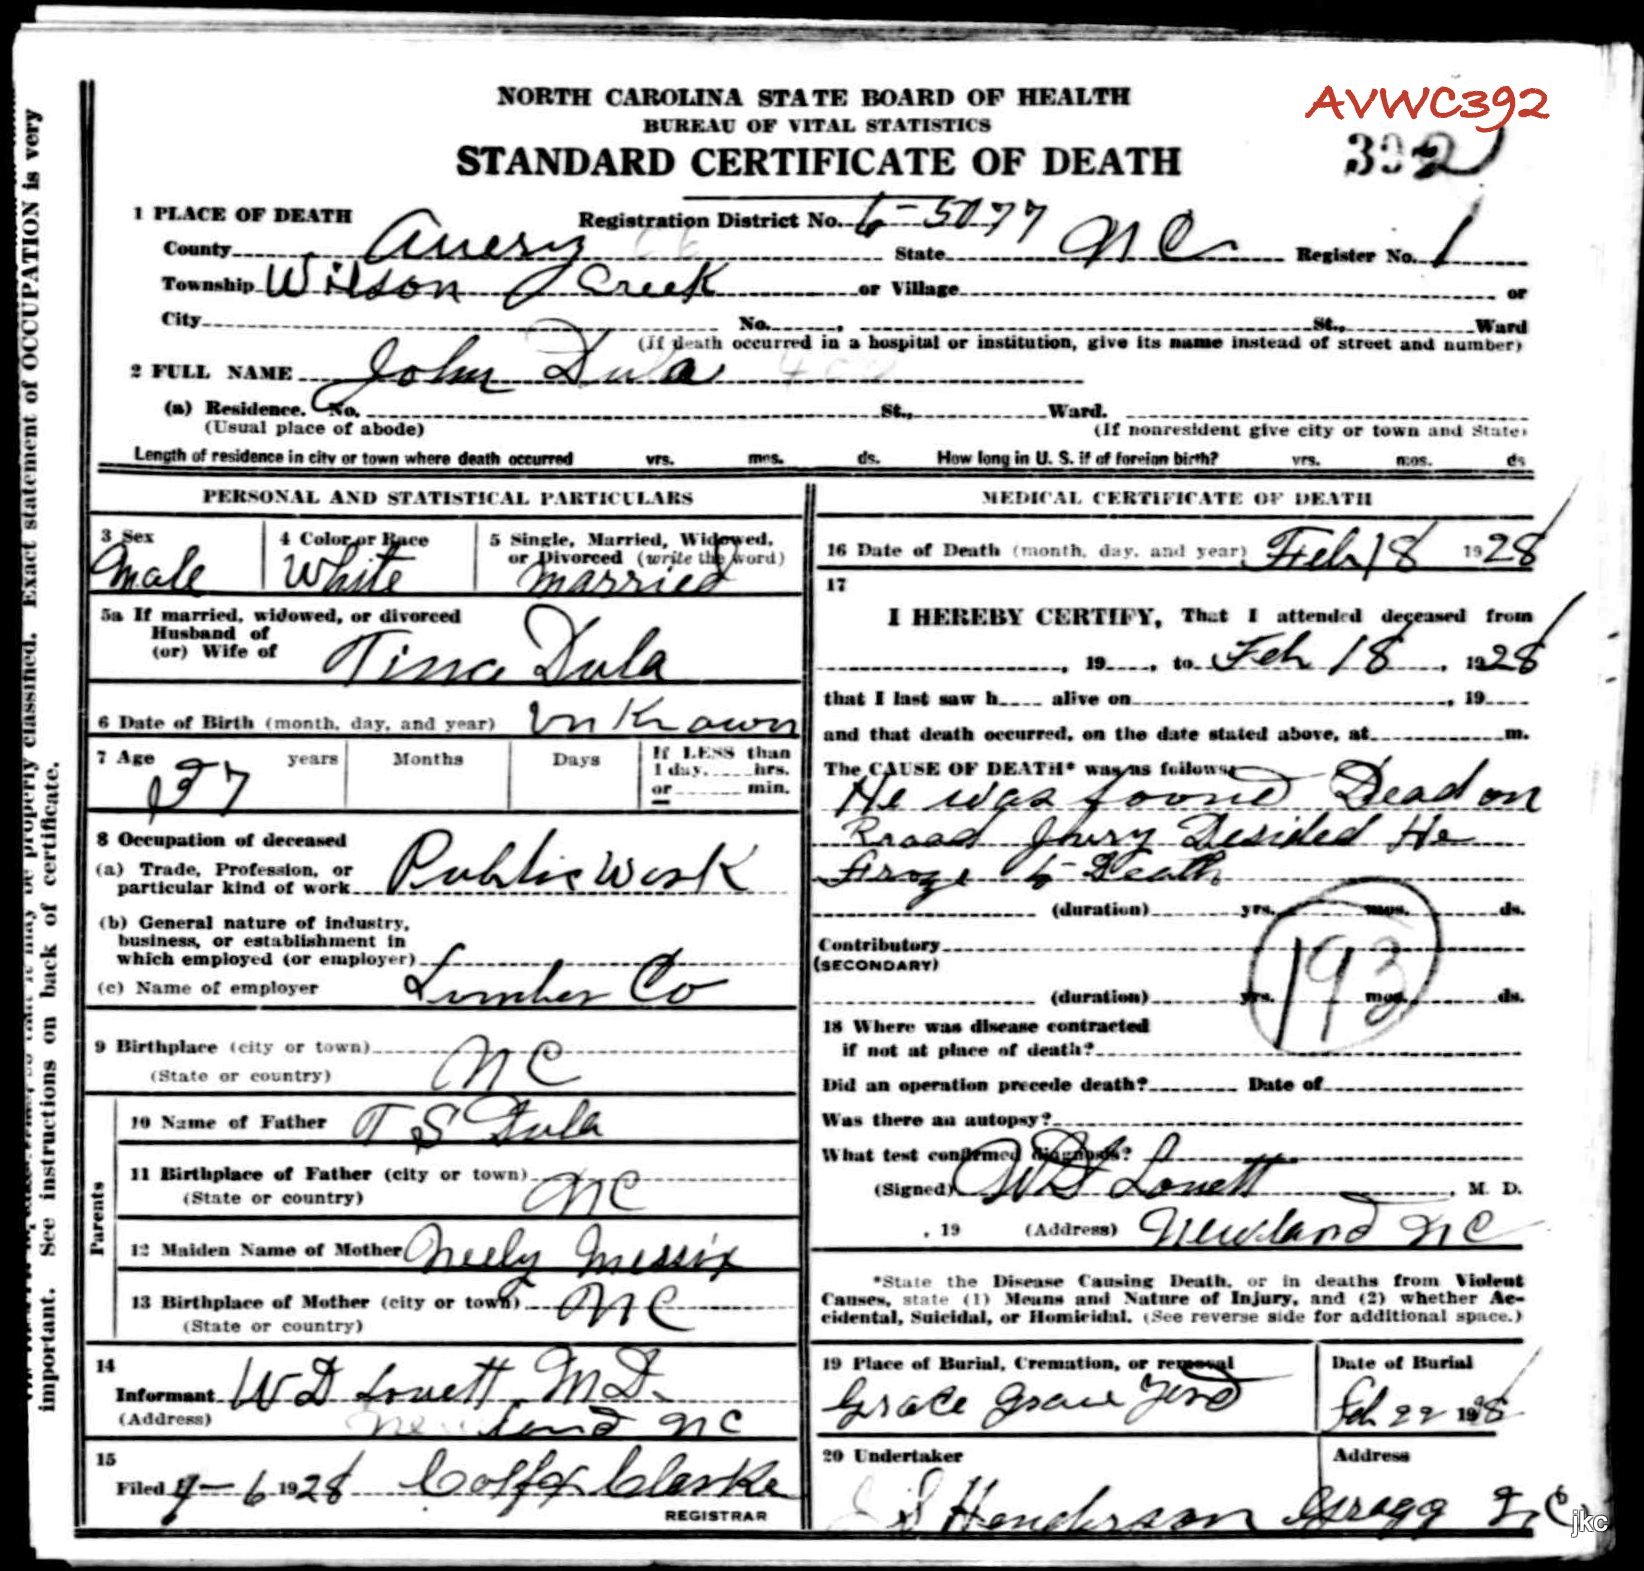 AVWC392
NORTH CAROLINA STATE BOARD OF HEALTH
BUREAU OF VITAL STATISTICS
392
STANDARD CERTIFICATE OF DEATH
1 PLACE OF DEATH Registration District No. 6-5077
County Avery State NC Register No. 1
Township Wilson Creek or Village or
City No. , St., Ward
(If death occurred in a hospital or institution, give its name instead of street and number)
2 FULL NAME John Dula
(a) Residence. No. St., Ward.
(Usual place of abode) (If nonresident give city or town and State)
Length of residence in city or town where death occurred yrs. mos. ds. How long in U. S. if of foreign birth? yrs. mos. ds
PERSONAL AND STATISTICAL PARTICULARS
3 Sex 4 Color or Race 5 Single, Married, Widowed, or Divorced (write the word)
Male White Married
5a If married, widowed, or divorced
Husband of
(or) Wife of Tina Dula
6 Date of Birth (month, day, and year) Unknown
7 Age years Months Days If LESS than
1 day, hrs.
or min.
57
8 Occupation of deceased
(a) Trade, Profession, or
particular kind of work Public Work
(b) General nature of industry,
business, or establishment in
which employed (or employer)
(c) Name of employer Lumber Co
9 Birthplace (city or town) NC
(State or country)
Parents
10 Name of Father T S Dula
11 Birthplace of Father (city or town) NC
(State or country)
12 Maiden Name of Mother Neely Messix
13 Birthplace of Mother (city or town) NC
(State or country)
14
Informant W D Lovett MD.
(Address) Newland NC
15
Filed 4-6 1928 Colfx Clarke
REGISTRAR
MEDICAL CERTIFICATE OF DEATH
16 Date of Death (month, day, and year) Feb 18 1928
17
I HEREBY CERTIFY, That I attended deceased from
, 19 , to Feb 18 , 1928
that I last saw h alive on , 19
and that death occurred, on the date stated above, at m.
The CAUSE OF DEATH* was as follows:
He was foond Dead on
Rroad Jury Desided He
Froze to Death
(duration) yrs. mos. ds.
Contributory
(SECONDARY)
193
(duration) yrs. mos. ds.
18 Where was disease contracted
if not at place of death?
Did an operation precede death? Date of
Was there an autopsy?
What test confirmed diagnosis?
(Signed) WD Lovett , M. D.
, 19 (Address) Newland NC
*State the Disease Causing Death, or in deaths from Violent
Causes, state (1) Means and Nature of Injury, and (2) whether Ac-
cidental, Suicidal, or Homicidal. (See reverse side for additional space.)
19 Place of Burial, Cremation, or removal Date of Burial
Grace Grave Yerd Feb 22 1928
20 Undertaker Address
S Henderson Gragg N C
important. See instructions on back of certificate.
properly classified. Exact statement of OCCUPATION is very
jkc